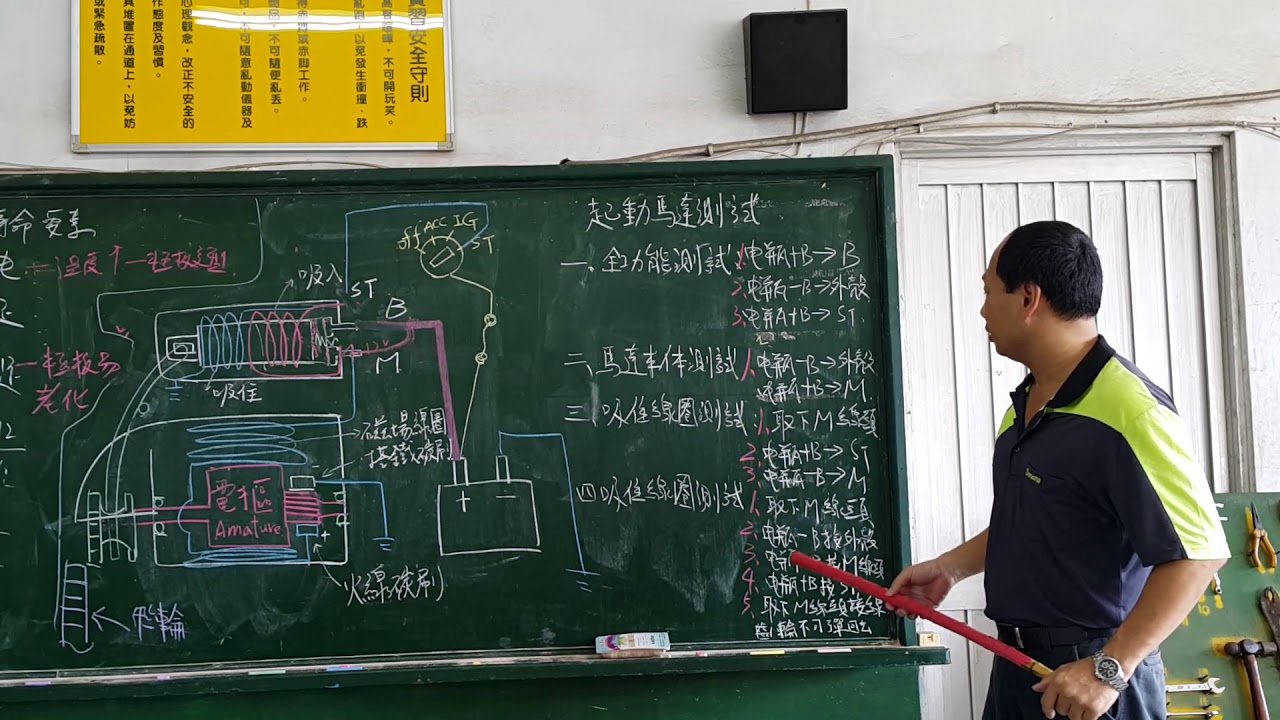 實習安全守則
高聲喧嘩，不可開玩笑。
亂跑，以免發生衝撞、跌
赤膊或赤腳工作。
物品，不可隨便亂丟。
，不可隨意亂動儀器及
心理觀念，改正不安全的
作態度及習慣。
具堆置在通道上，以免妨
或緊急疏散。
壽命要素
溫度↑
極板易
老化
吸入
ST
B
M
12V
吸住
off ACC IG
ST
磁場線圈
搭鐵碳刷
電樞
Amature
+
火線碳刷
飛輪
+ −
起動馬達測試
一、全功能測試 1.电瓶+B→B
2.电瓶−B→外殼
3.电瓶+B→ST.
二、馬達本体測試 1.电瓶−B→外殼
电瓶+B→M.
三、吸住線圈測試 1.取下M線頭
2.电瓶+B→ST
3.电瓶−B→M
四、吸住線圈測試 1.取下M線頭
2.电瓶−B接外殼
3.电瓶 接M線頭
4.电瓶+B接ST
5.取下M線
齒輪不可彈回去